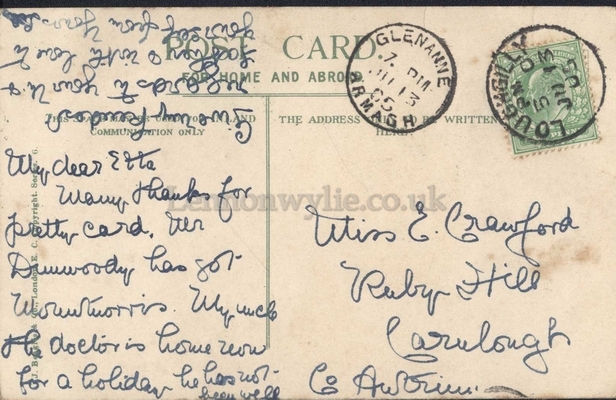 POST CARD.
FOR HOME AND ABROAD
THIS SPACE MAY BE USED FOR INLAND
COMMUNICATION ONLY
THE ADDRESS MUST BE WRITTEN
HERE.
GLENANNE
7 PM
13
05
ARMAGH
LOUGHGILLY
My dear Etta
Many thanks for
pretty card. Mr
Dunwoody has got
Mountnorris. My uncle
the doctor is home now
for a holiday he has not
been well
Give my kindest
regards to your
love to
yourself from Yours
Miss E. Crawford
Ruby Hill
Carnlough
Co Antrim
Lennonwylie.co.uk
London E. C. Copyright.